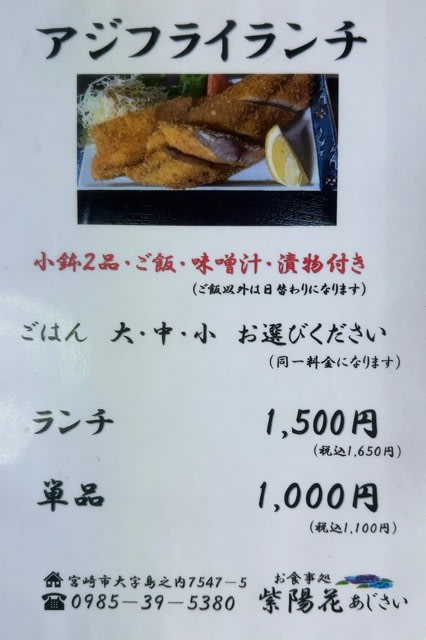 アジフライランチ
小鉢2品・ご飯・味噌汁・漬物付き
(ご飯以外は日替わりになります)
ごはん 大・中・小 お選びください
(同一料金になります)
ランチ 1,500円
(税込1,650円)
単品 1,000円
(税込1,100円)
宮崎市大字島之内7547-5
☎0985-39-5380
お食事処
紫陽花 あじさい